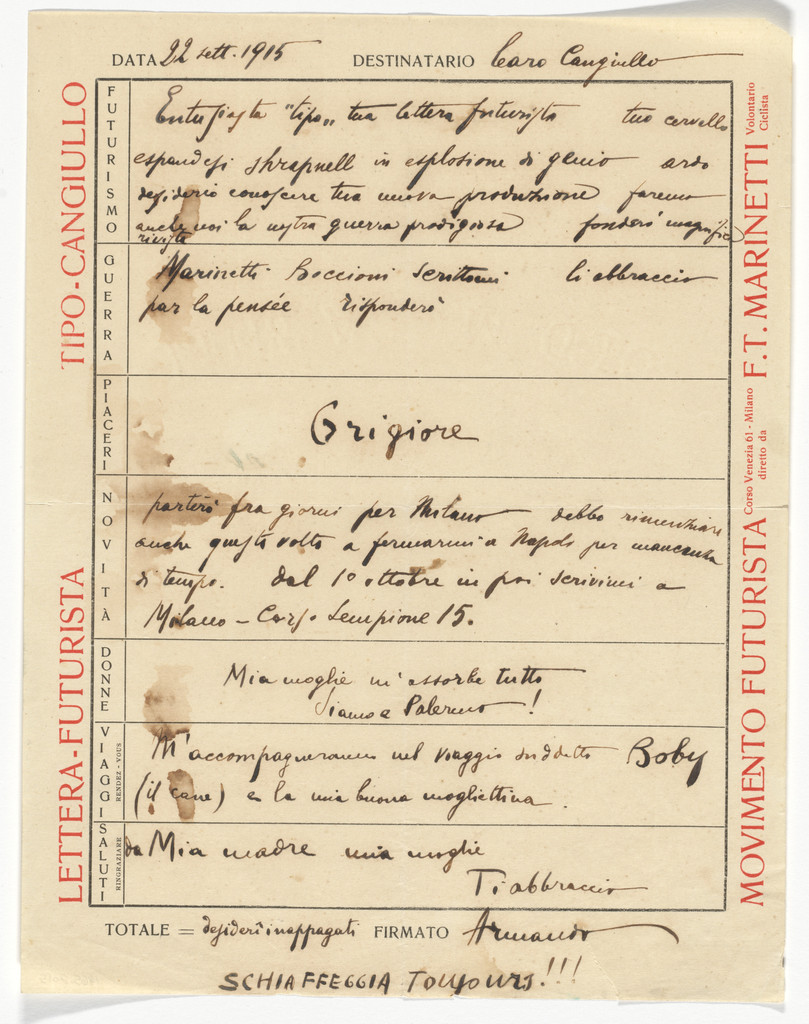 DATA 22 sett. 1915 DESTINATARIO Caro Cangiullo
FUTURISMO
Entusiasta "tipo" tua lettera futurista tuo cervello
espandesi shrapnell in esplosione di genio ardo
desiderio conoscere tua nuova produzione faremo
anche noi la nostra guerra prodigiosa fonderò magnifica
rivista
GUERRA
Marinetti Boccioni scrittomi li abbraccio
par la pensée risponderò
PIACERI
Grigiore
NOVITÀ
partirò fra giorni per Milano debbo rinunziare
anche questa volta a fermarmi a Napoli per mancanza
di tempo. Dal 1o ottobre in poi scrivimi a
Milano - Corso Sempione 15.
DONNE
Mia moglie m'assorbe tutto
Siamo a Palermo!
VIAGGI
RENDEZ-VOUS
M'accompagneranno nel viaggio suddetto Boby
(il cane) e la mia buona mogliettina.
SALUTI
RINGRAZIARE
da Mia madre mia moglie
Ti abbraccio
TOTALE = desiderî inappagati FIRMATO Armando
SCHIAFFEGGIA TOUJOURS!!!
LETTERA-FUTURISTA TIPO-CANGIULLO
MOVIMENTO FUTURISTA
Corso Venezia 61 - Milano
diretto da
F. T. MARINETTI
Volontario
Ciclista